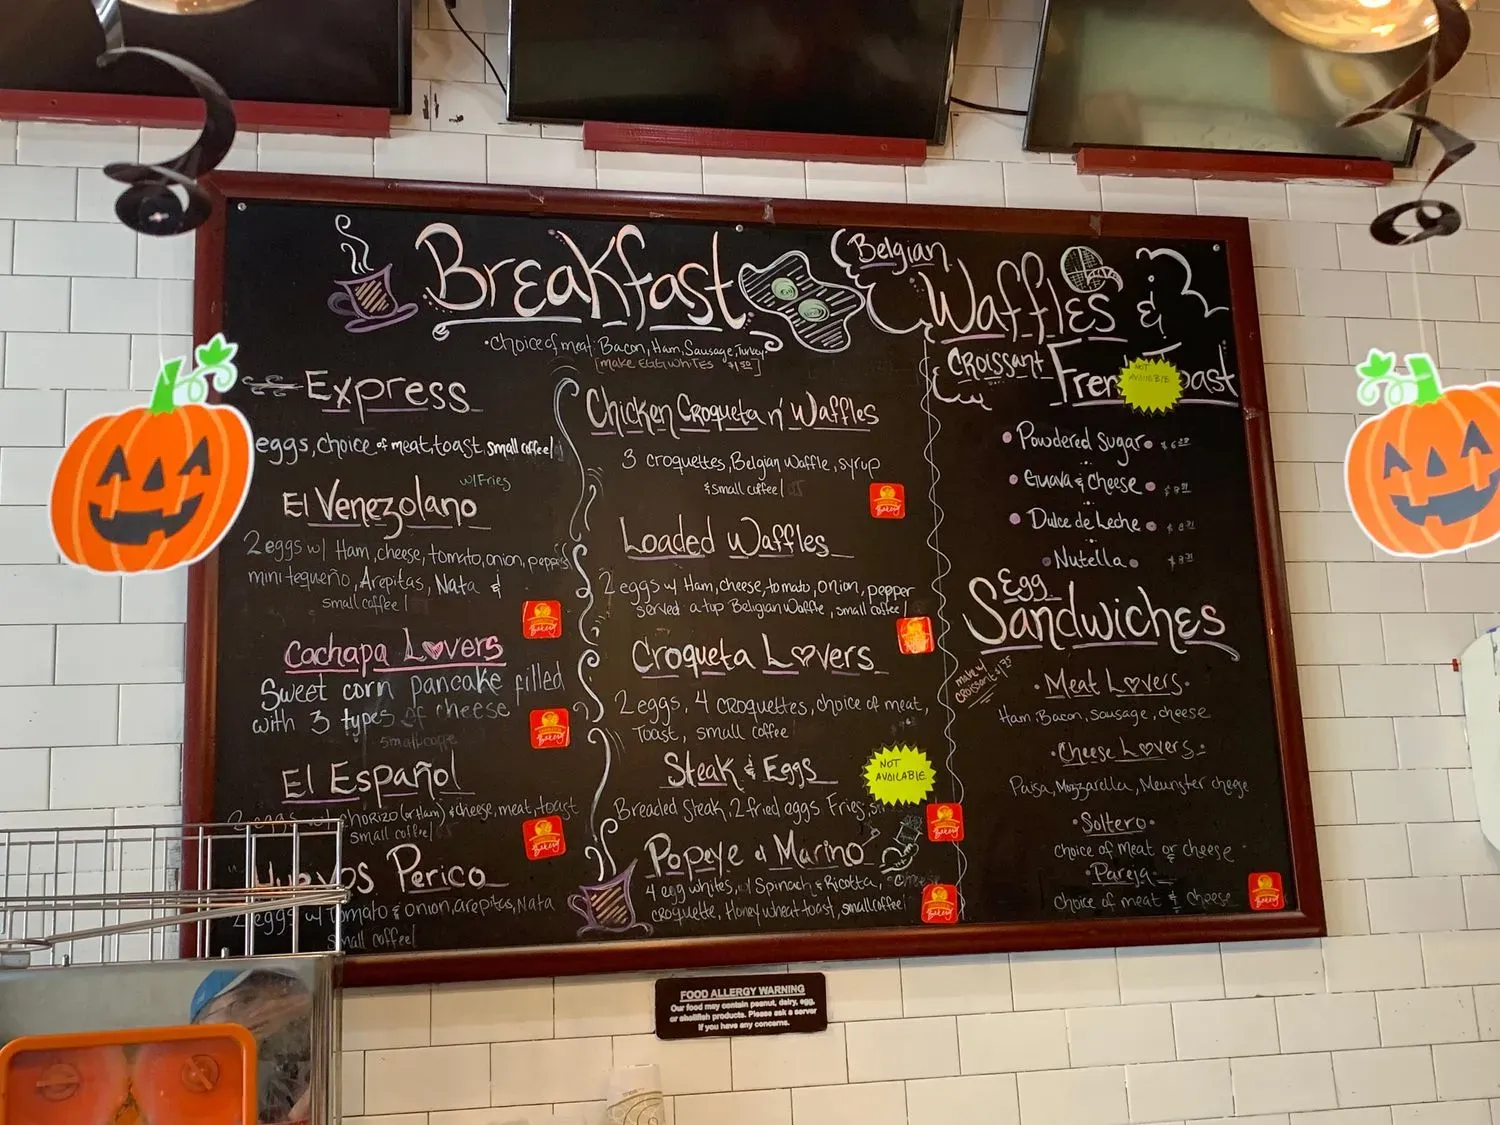 Breakfast
•choice of meat: Bacon, Ham, Sausage, Turkey
[make EGG WHITES $1.50]
Express
eggs, choice of meat, toast, small coffee/
w/Fries
El Venezolano
2 eggs w/ Ham, cheese, tomato, onion, peppers
mini tequeño, Arepitas, Nata &
small coffee/
Cachapa Lovers
Sweet corn pancake filled
with 3 types of cheese
small coffe
El Español
2 eggs w/ chorizo (or Ham) & cheese, meat, toast
small coffee/
Huevos Perico
2 eggs w/ Tomato & onion, arepitas, Nata
small coffee/
Chicken Croqueta n' Waffles
3 croquettes, Belgian Waffle, syrup
& small coffee/
Loaded Waffles
2 eggs w/ Ham, cheese, tomato, onion, pepper
served atup Beligian Waffle, small coffee/
Croqueta Lovers
2 eggs, 4 croquettes, choice of meat,
Toast, small coffee
Steak & Eggs
NOT
AVAILABLE
Breaded Steak, 2 fried eggs Fries,
Popeye & Marino
4 egg whites, w/ Spinach & Ricotta, cheese
croquette, Honey wheat toast, small coffee/
Belgian
Waffles &
Croissant
French Toast
NOT
AVAILABLE
• Powdered Sugar •
• Guava & Cheese •
• Dulce de Leche •
• Nutella •
Egg
Sandwiches
make w/
croissant
• Meat Lovers •
Ham, Bacon, Sausage, cheese
• Cheese Lovers •
Paisa, Mozzarella, Meunster cheese
• Soltero •
choice of meat or cheese
• Pareja •
choice of meat & cheese
Bakery
Bakery
Bakery
Bakery
FOOD ALLERGY WARNING
Our food may contain peanut, dairy, egg,
or shellfish products. Please ask a server
if you have any concerns.